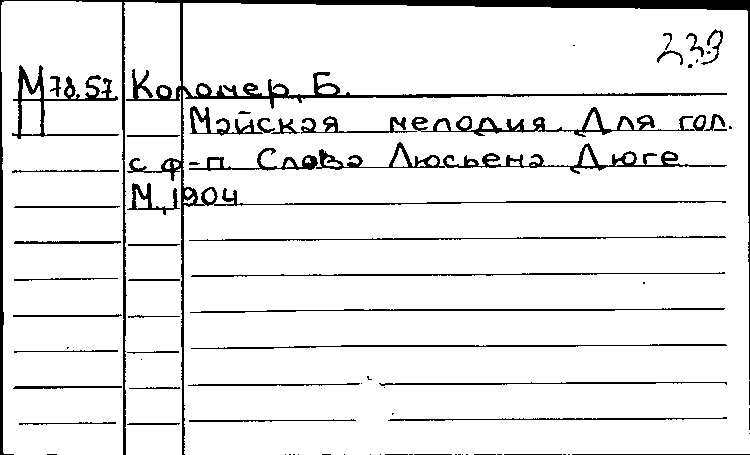 239
М 78.57 Коломер, Б.
П Мэйская мелодия. Для гол.
с ф-п. Слова Люсьена Дюге
М., 1904